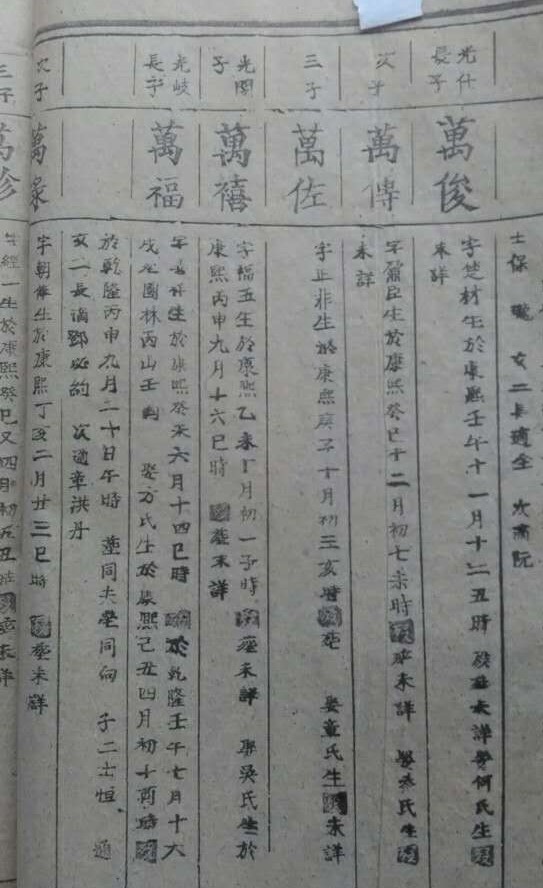 士保 女二長適全 次適阮
光什長子
萬俊
字楚材生於康熙壬午十一月十二丑時 未詳娶何氏生
未詳
次子
萬傳
字 臣生於康熙癸巳十二月初七未時 未詳 娶 氏生
未詳
三子
萬佐
字正非生於康熙庚子十月初三亥時 娶童氏生 未詳
光閣子
萬禧
字幅五生於康熙乙未 月初一子時 塟未詳 娶吳氏生於
康熙丙申九月十六巳時 塟未詳
光岐長子
萬福
字 生於康熙癸未六月十四巳時 於乾隆壬午七月十六
戌 園林丙山壬 娶方氏生於康熙己丑四月初十酉時
於乾隆丙申九月二十日午時 塟同夫塋同向 子二士恒 通
女二長適鄧必約 次適章洪丹
次子
萬祿
字朝 生於康熙丁亥二月廿三巳時 塟未詳
三子
萬珍
字經一生於康熙癸巳又四月初五丑時 未詳